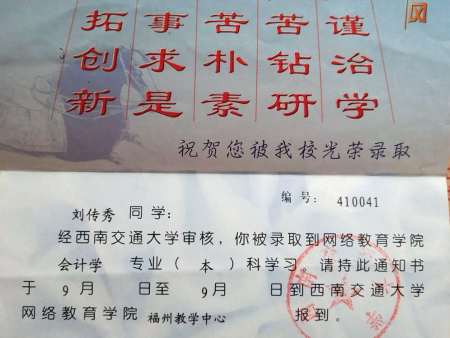 风
谨 苦 苦 事 拓
治 钻 朴 求 创
学 研 素 是 新
祝贺您被我校光荣录取
编号: 410041
刘传秀 同学:
经西南交通大学审核,你被录取到网络教育学院
会计学 专业( 本 )科学习。请持此通知书
于 9月 日至 9月 日到西南交通大学
网络教育学院 福州教学中心 报到。